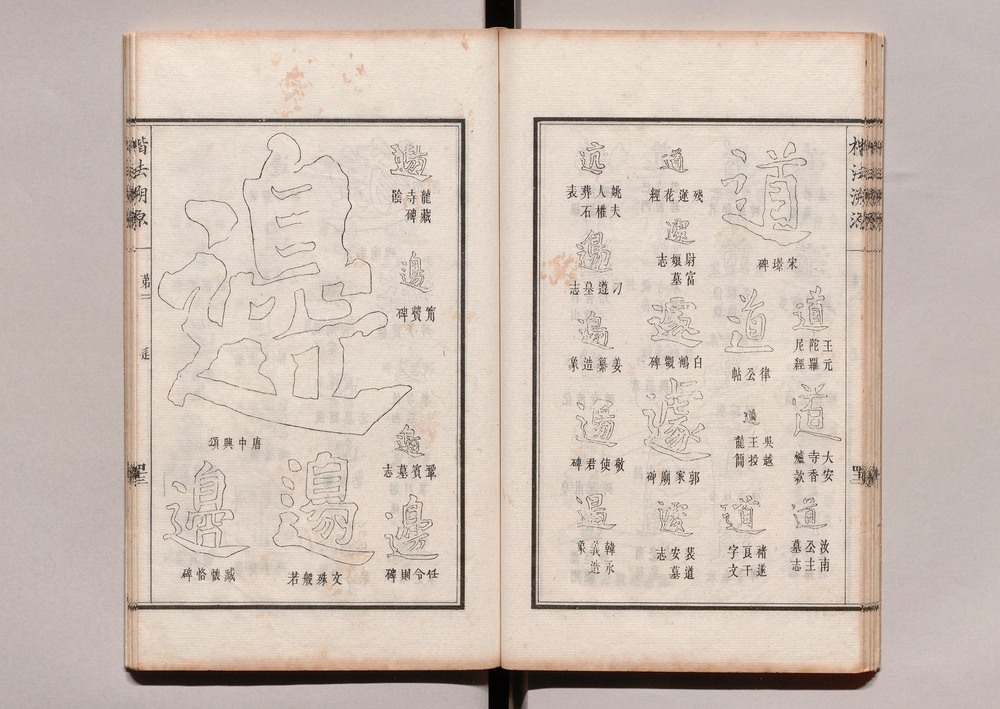 楷法溯源
道
宋璟碑
道
王元
陀羅
尼經
道
大安
寺香
爐款
道
汝南
公主
墓志
道
律公帖
道
吳越
王投
龍簡
道
褚遂
良千
字文
道
殘蓮花經
遽
尉富
娘墓
志
遽
白鶴觀碑
遽
郭家廟碑
遽
裴道
安墓
志
迒
姚夫
人權
葬石
表
邊
刁遵墓志
邊
姜纂造象
邊
敬使君碑
邊
韓永
義造
象
邊
龍藏
寺碑
陰
邊
甯贙碑
邊
鞏賓墓志
邊
任令則碑
邊
唐中興頌
邊
文殊般若
邊
臧懷恪碑
楷法溯源
第二
辵